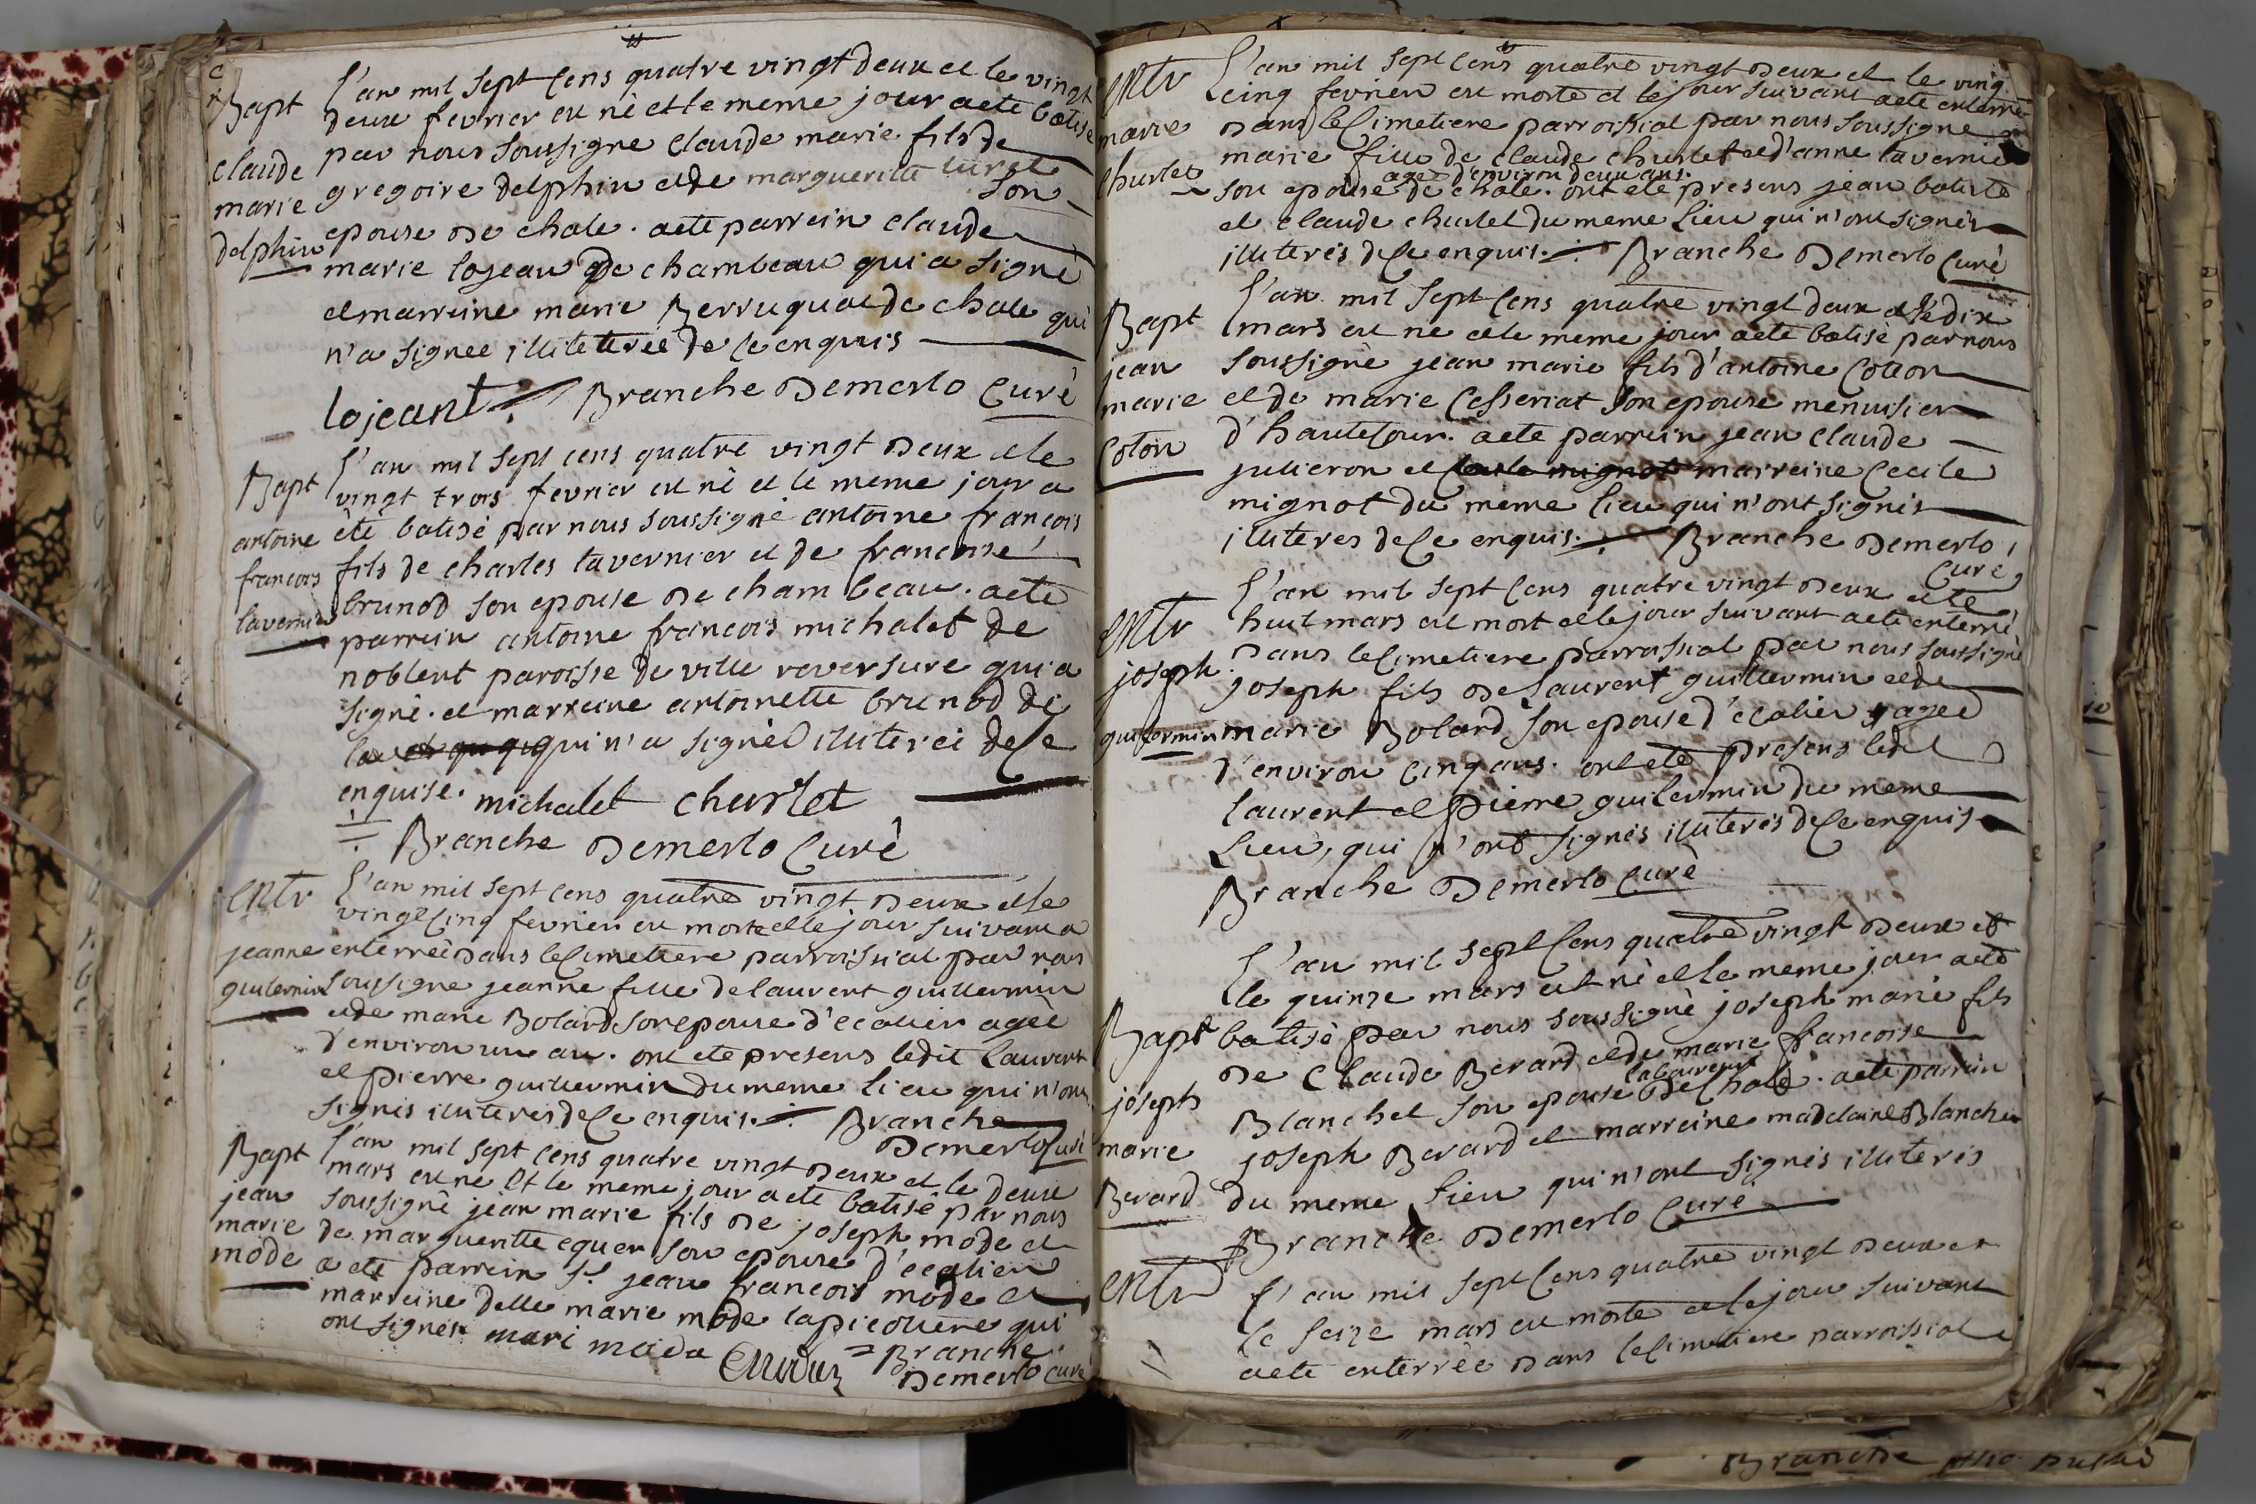 Bapt
claude
marie
delphin
l'an mil sept cens quatre vingt deux et le vingt
deux fevrier est né et le meme jour a eté batisé
par nous soussigné claude marie fils de
gregoire delphin et de marguerite
son
epouse de chale. a eté parrein claude
marie lojeau de chambeau qui a signé
et marreine marie Berruquat de chale qui
n'a signée illiteteree de ce enquis
lojeant Branche Demerlo Curé
Bapt
antoine
francois
tavernier
l'an mil sept cens quatre vingt deux et le
vingt trois fevrier est né et le meme jour a
èté batisé par nous soussigné antoine francois
fils de charles tavernier et de francoise
brunod son epouse de chambeau. a eté
parrein antoine francois michalet de
noblent paroisse de ville reversure qui a
signé. et marreine antoinette brunod de
qui n'a signèe illiterèe de ce
enquise. michalet churlet
Branche Demerlo Curé
entr
jeanne
guilermin
l'an mil sept cens quatre vingt deux et le
vingt cinq fevrier est morte et le jour suivant a
enterreé dans le cimetiere parroissial par nous
soussigne jeanne fille de laurent guillermin
et de marie Bolard son epouse d'ecolier ageé
d'environ un an. ont eté presens ledit laurent
et pierre guillermin du meme lieu qui n'ont
signés illiterés de ce enquis. Branche
Demerlo Curé
Bapt
jean
marie
mode
l'an mil sept cens quatre vingt deux et le deux
mars est ne et le meme jour a eté batisé par nous
soussigné jean marie fils de joseph mode et
de marguerite equer son epouse d'ecalier
a eté parrein sr jean francois mode et
marreine delle marie mode lapicotiere qui
ont signés. mari mode
Branche
Demerlo Curé
entr
marie
Churlet
l'an mil sept cens quatre vingt deux et le vingt
cinq fevrier est morte et le jour suivant a eté enterreé
dans le cimetiere parroissial par nous soussigne
marie fille de claude churlet et d'anne tavernier
ageé d'environ deux ans.
son epouse de chale. ont eté presens jean batiste
et claude churlet du meme lieu qui n'ont signés
illiterés de ce enquis. Branche Demerlo Curé
Bapt
jean
marie
Coton
l'an mil sept cens quatre vingt deux et le dix
mars est ne et le meme jour a eté batisé par nous
soussigné jean marie fils d'antoine Cotton
et de marie Cesseriat son epouse menuisier
d'hautecour. a eté parrein jean claude
julieron et marreine Cecile
mignot du meme lieu qui n'ont signés
illiteres de ce enquis. Branche Demerlo
Curé
entr
joseph
guilermin
l'an mil sept cens quatre vingt deux et le
huit mars est mort et le jour suivant a eté enterré
dans le cimetiere parroissial par nous soussigné
joseph fils de Laurent guillermin et de
marie Bolard son epouse d'ecolier ageé
d'environ cinq ans. ont eté presens ledit
laurent et pierre guilermin du meme
Lieu, qui n'ont signés illiterés de ce enquis
Branche Demerlo Curé
Bapt
joseph
marie
Berard
l'an mil sept cens quatre vingt deux et
le quinze mars est né et le meme jour a eté
batisé par nous soussigné joseph marie fils
de Claude Berard et de marie francoise
laboureur
Blanchet son epouse de Chale. a eté parrein
joseph Berard et marreine madelaine Blanchet
du meme lieu qui n'ont signés illiterés
Branche Demerlo Curé
entr
l'an mil sept cens quatre vingt deux et
le seize mars est morte et le jour suivant
a eté enterrèe dans le cimetiere parroissial
Branche